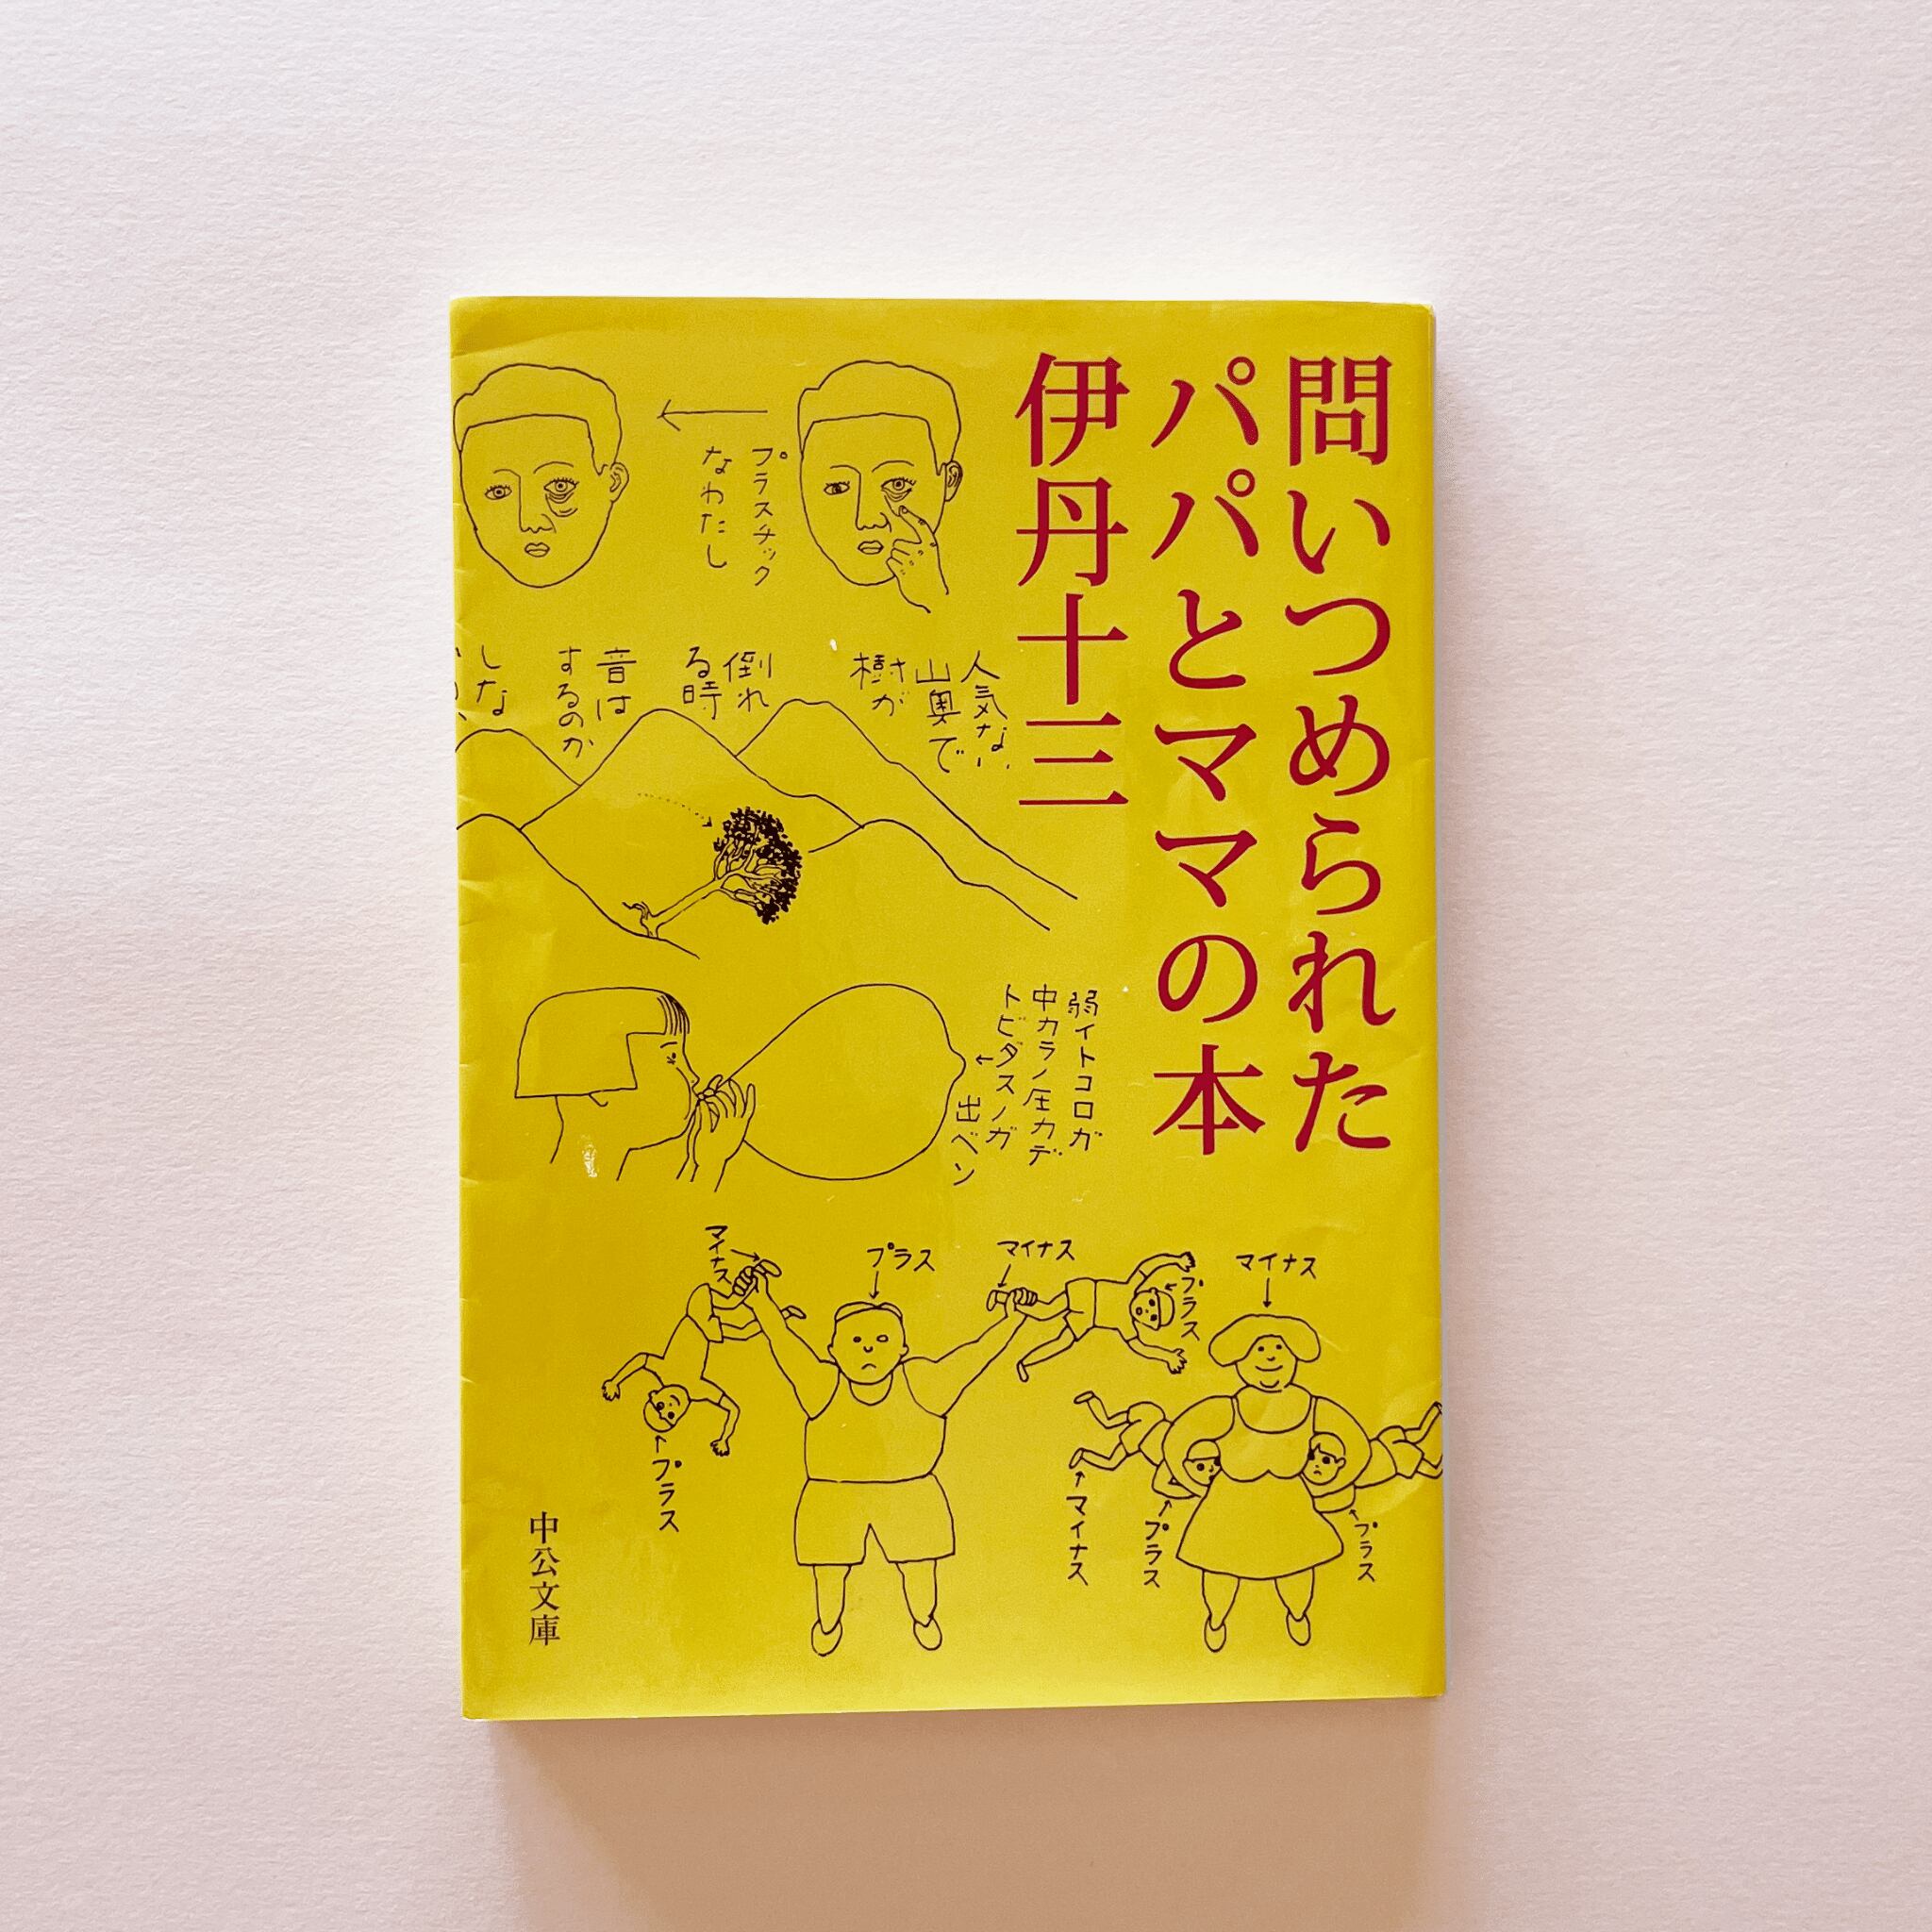 問いつめられた
パパとママの本
伊丹十三
プラスチック
なわたし
人気ない
山奥で
樹が
倒れ
る時
音は
するのか
しな
弱イトコロガ
中カラノ圧力デ
トビダスノガ
出ベソ
マイナス
プラス
マイナス
プラス
マイナス
プラス
マイナス
プラス
プラス
中公文庫